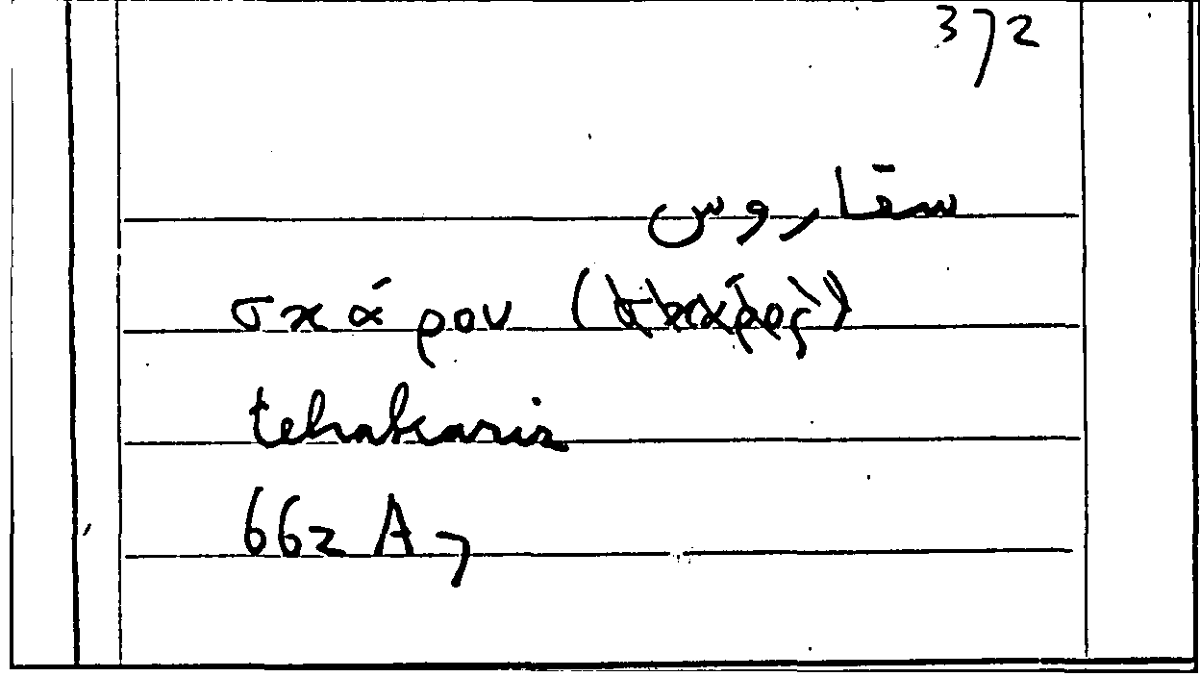 372
سقاروس
σκάρου (σκάρος)
tehakaris
662 A 7